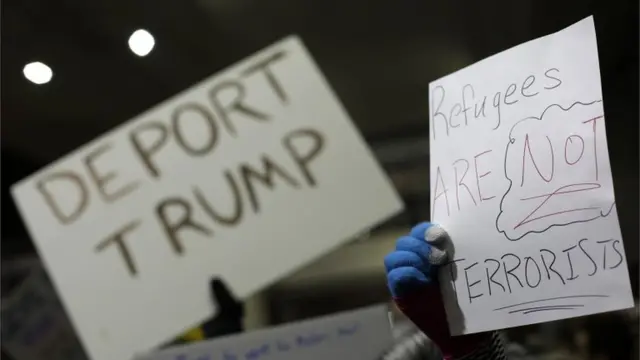 DEPORT
TRUMP
Refugees
ARE NOT
TERRORISTS